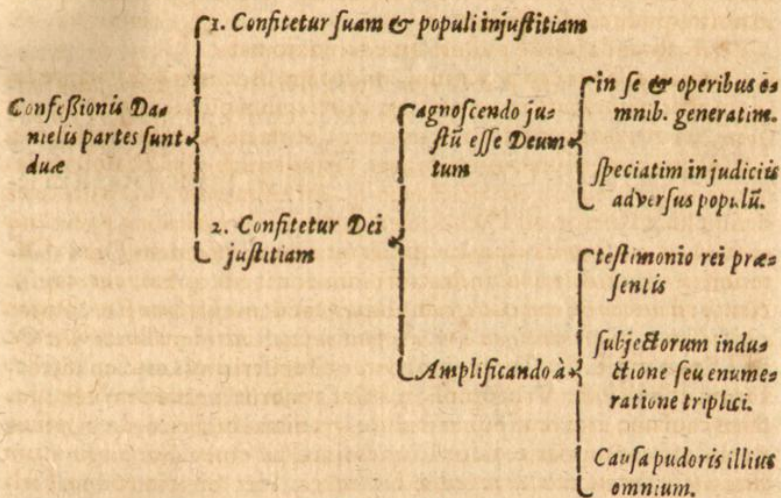 1. Confitetur ſuam & populi injuſtitiam
Confeßionis Da⸗
nielis partes ſunt
duæ
2. Confitetur Dei
juſtitiam
agnoſcendo ju⸗
ſtū eſſe Deum
tum
in ſe & operibus o⸗
mnib. generatim.
ſpeciatim in judiciis
adverſus populū.
Amplificando à
teſtimonio rei præ⸗
ſentis
ſubjectorum indu⸗
ctione ſeu enume⸗
ratione triplici.
Cauſa pudoris illius
omnium.